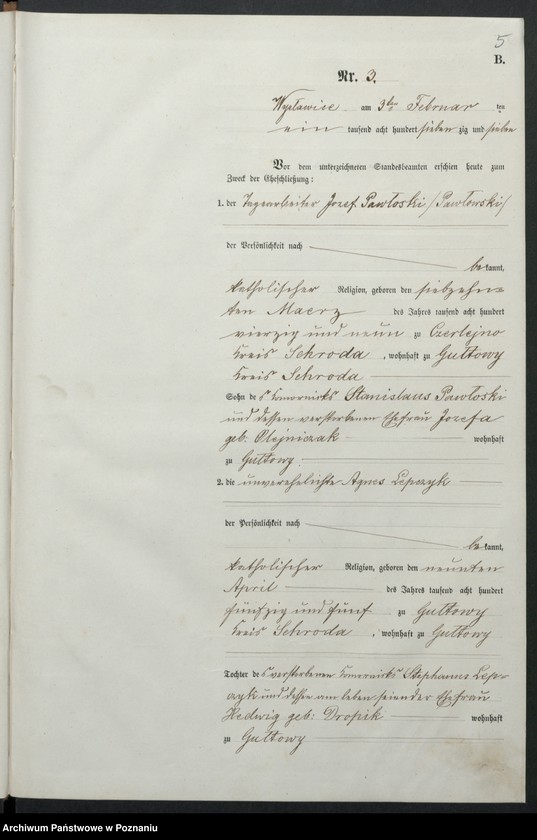 5
B.
Nr. 3.
Węsławice am 3ten Februar
tausend acht hundert sieben zig und sieben
Vor dem unterzeichneten Standesbeamten erschien heute zum
Zweck der Eheschließung:
1. der Tagearbeiter Jozef Pawłoski /Pawłowski/
der Persönlichkeit nach
be kannt,
katholischer Religion, geboren den siebzehn-
ten Maerz des Jahres tausend acht hundert
vierzig und neun zu Czerlejno
Kreis Schroda, wohnhaft zu Gultowy
Kreis Schroda
Sohn des Komorniks Stanislaus Pawłoski
und dessen verstorbenen Ehefrau Jozefa
geb: Olejniczak wohnhaft
zu Gultowy
2. die unverehelichte Agnes Lepczyk
der Persönlichkeit nach
be kannt,
katholischer Religion, geboren den neunten
April des Jahres tausend acht hundert
fünfzig und fünf zu Gultowy
Kreis Schroda, wohnhaft zu Gultowy
Tochter des verstorbenen Komorniks Stephanus Lep-
czyk und dessen am leben seiender Ehefrau
Hedwig geb: Dropik wohnhaft
zu Gultowy
Archiwum Państwowe w Poznaniu